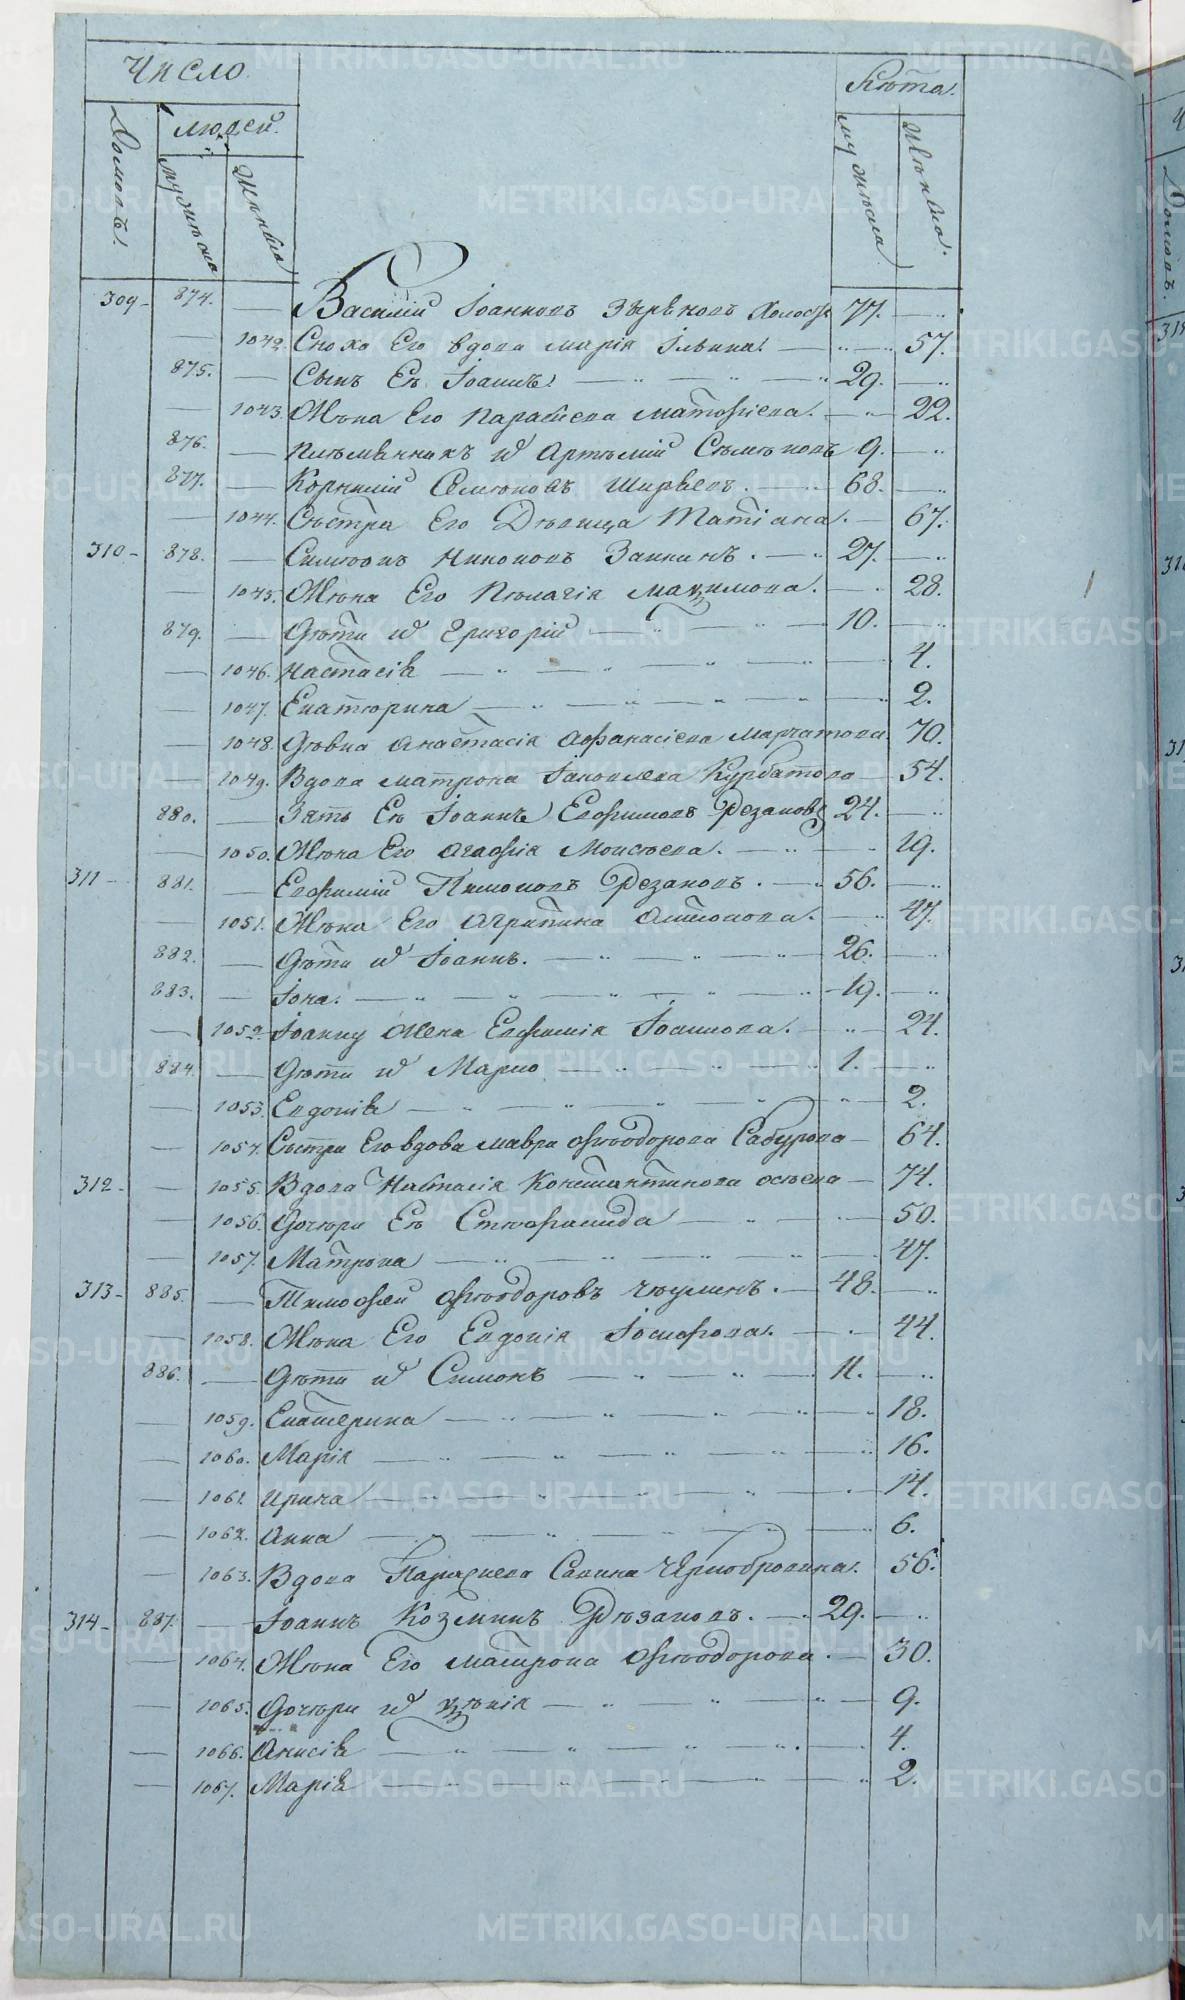 Число Лѣта.
Домовъ. людей. мужеска женска
мужеска женска.
309 - 874. — Василий Іоанновъ Зырѣновъ Холостъ 77. —
— 1042. Сноха Его вдова марія Ільина. — 57.
875. — Сынъ Еѣ Іоаннъ. — 29. —
— 1043. Жена Его Параскева Матофіева. — 22.
876. — племѣнникъ и Артѣмій Сѣмѣновъ 9. —
877. — Корнилій Семѣновъ Ширѣевъ. — 68. —
— 1044. Сѣстра Его Дѣвица Татіана. — 67.
310 - 878. — Симѣонъ Никоновъ Заикинъ. — 27. —
— 1045. Жена Его Пелагія Мадимова. — 28.
879. — Дѣти и Григорій — 10. —
— 1046. Настасія — 4.
— 1047. Екатерина — 2.
— 1048. Дѣвка Анастасія Афанасіева Марчатова 70.
— 1049. Вдова матрона Іаковлева Курбатова — 54.
880. — Зять Еѣ Іоаннъ Евфимовъ Рѣзановъ 24. —
— 1050. Жена Его Агафія Моисѣева. — 19.
311 — 881. — Евфимій Пимоновъ Рѣзановъ. — 56. —
— 1051. Жена Его Агрипина Антонова. — 47.
882. — Дѣти и Іоаннъ. — 26. —
883. — Іона. — 19. —
— 1052. Іоанну жена Евфимія Іоаннова. — 24.
884. — Дѣти и Марко — 1. —
— 1053. Евдокія — 2.
— 1054. Сѣстра Его вдова мавра Феодорова Сабурова — 64.
312 - — 1055. Вдова Настасія Константинова осѣева — 74.
— 1056. Дочери Еѣ Стефанида — 50.
— 1057. Матрона — 47.
313 - 885. — Тимофей Феодоровъ Чюулинъ. — 48. —
— 1058. Жена Его Евдокія Іосифова. — 44.
886. — Дѣти и Симонъ — 11. —
— 1059. Екатерина — 18.
— 1060. Марія — 16.
— 1061. Ирина — 14.
— 1062. Анна — 6.
— 1063. Вдова Параскева Савина Чернобровина. 56.
314 - 887. — Іоаннъ Козминъ Рѣзановъ. — 29. —
— 1064. Жена Его матрона Феодорова. — 30.
— 1065. Дочери и — 9.
— 1066. Анисія — 4.
— 1067. Марія — 2.
METRIKI.GASO-URAL.RU